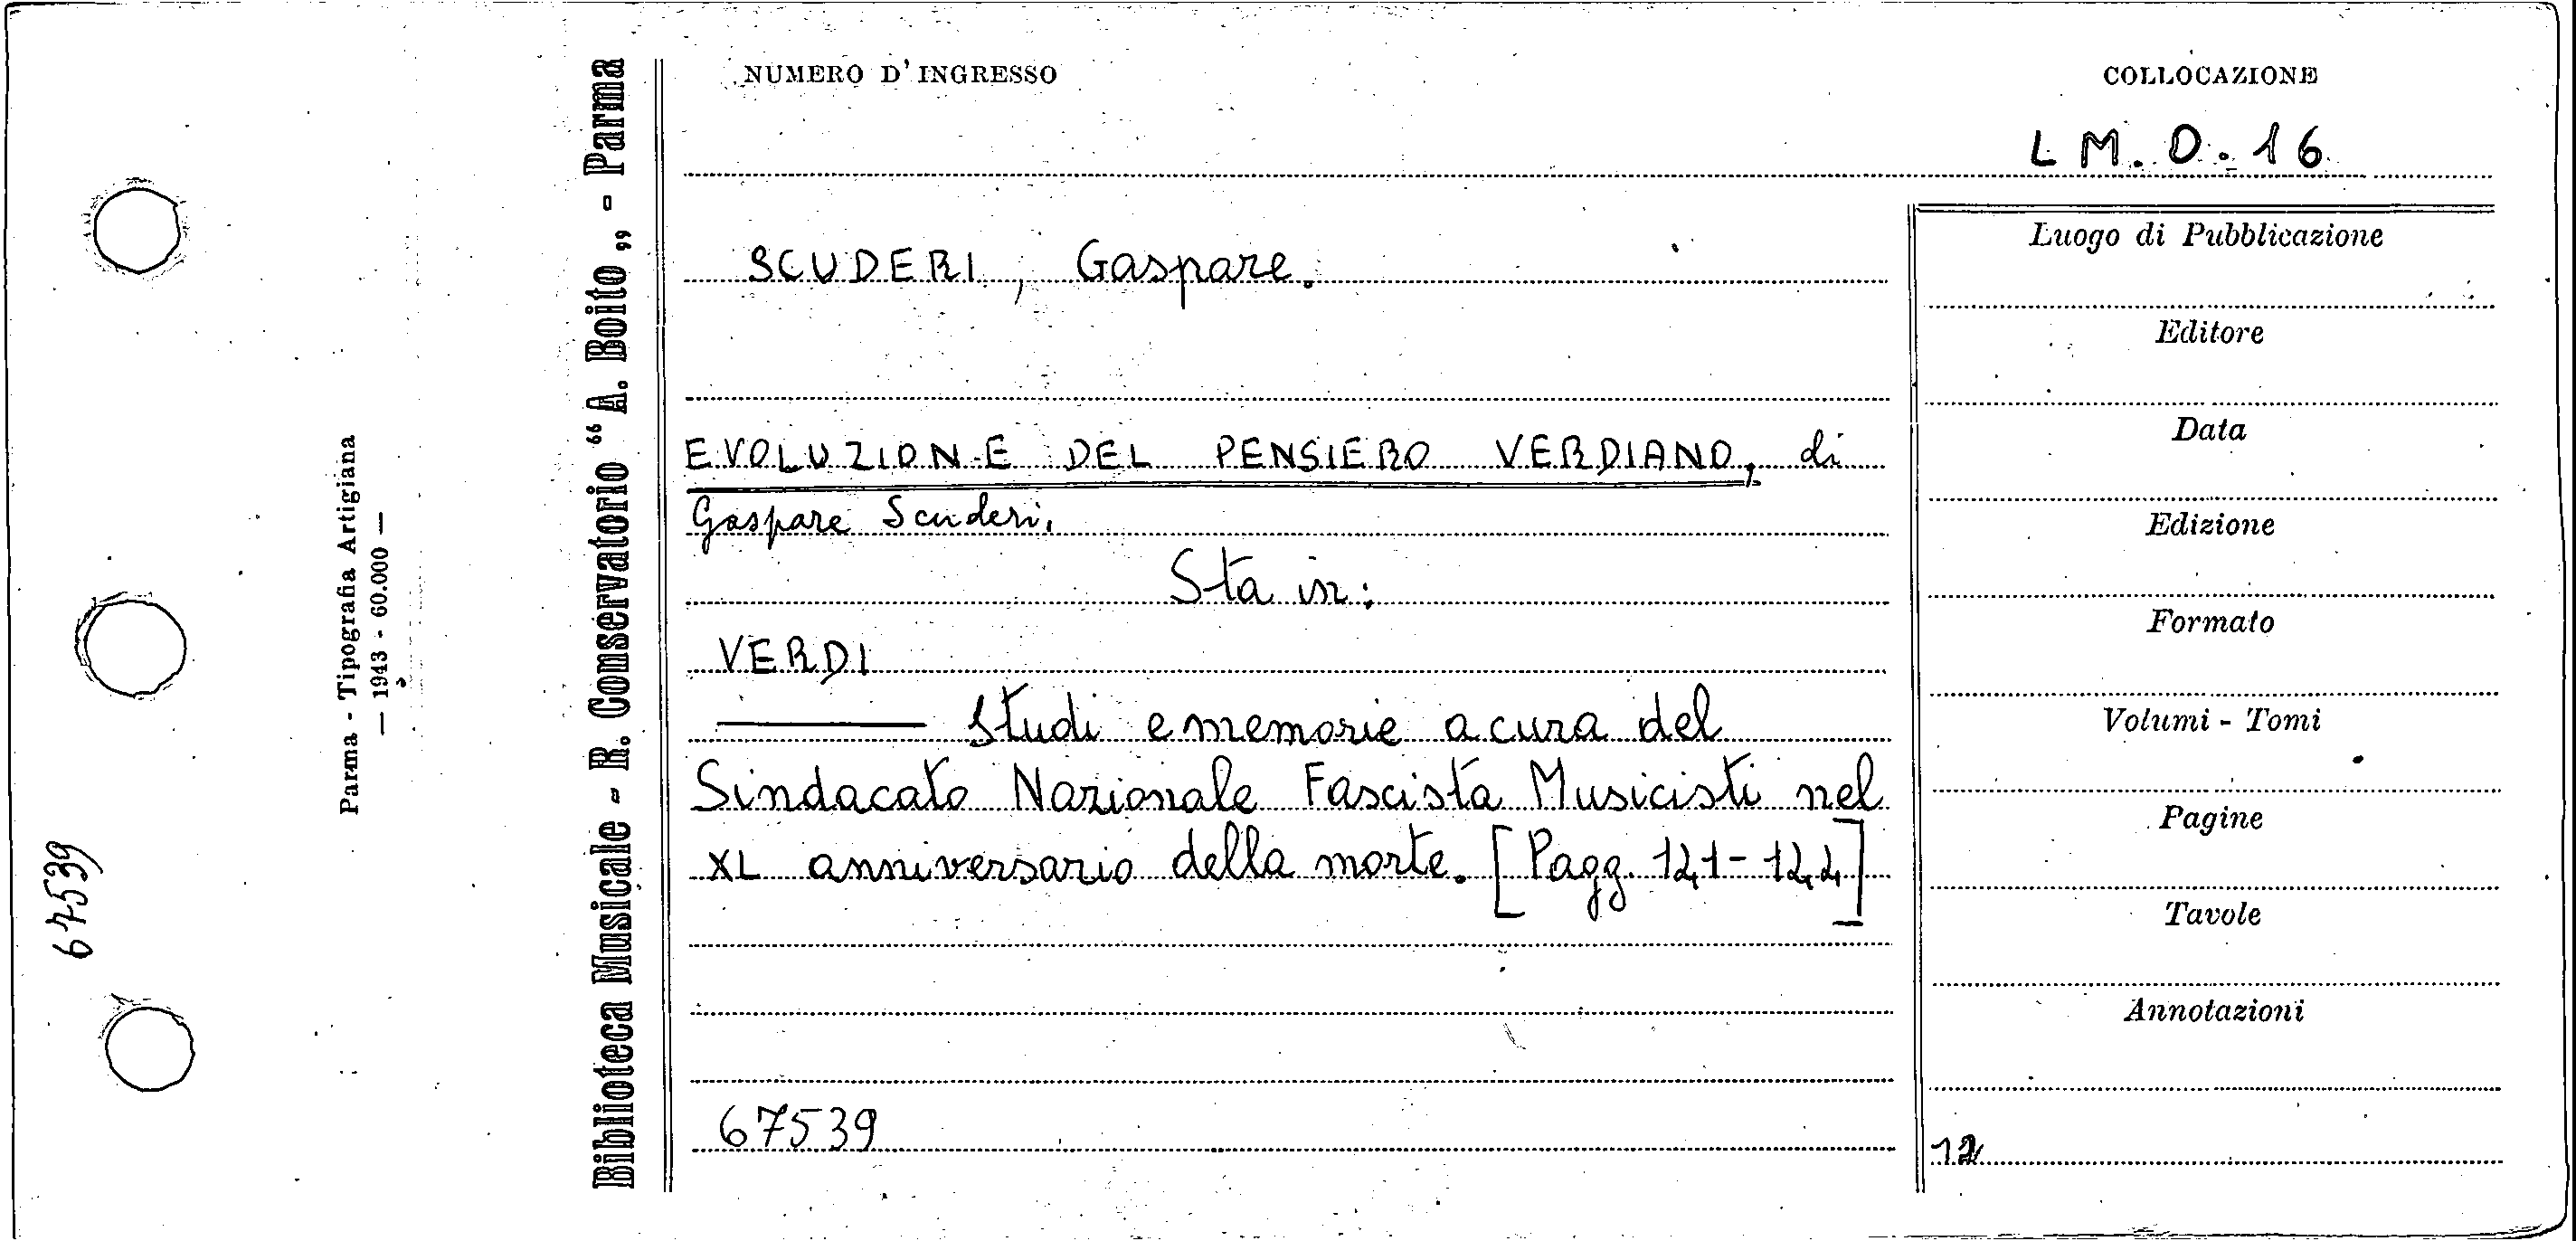 NUMERO D'INGRESSO
COLLOCAZIONE
L M. O. 16
SCUDERI, Gaspare.
EVOLUZIONE DEL PENSIERO VERDIANO, di
Gaspare Scuderi.
Sta in:
VERDI
——— Studi e memorie a cura del
Sindacato Nazionale Fascista Musicisti nel
XL anniversario della morte. [Pagg. 121-122]
67539
Luogo di Pubblicazione
Editore
Data
Edizione
Formato
Volumi - Tomi
Pagine
Tavole
Annotazioni
12
Biblioteca Musicale - R. Conservatorio “A. Boito„ - Parma
Parma - Tipografia Artigiana
— 1943 - 60.000 —
67539